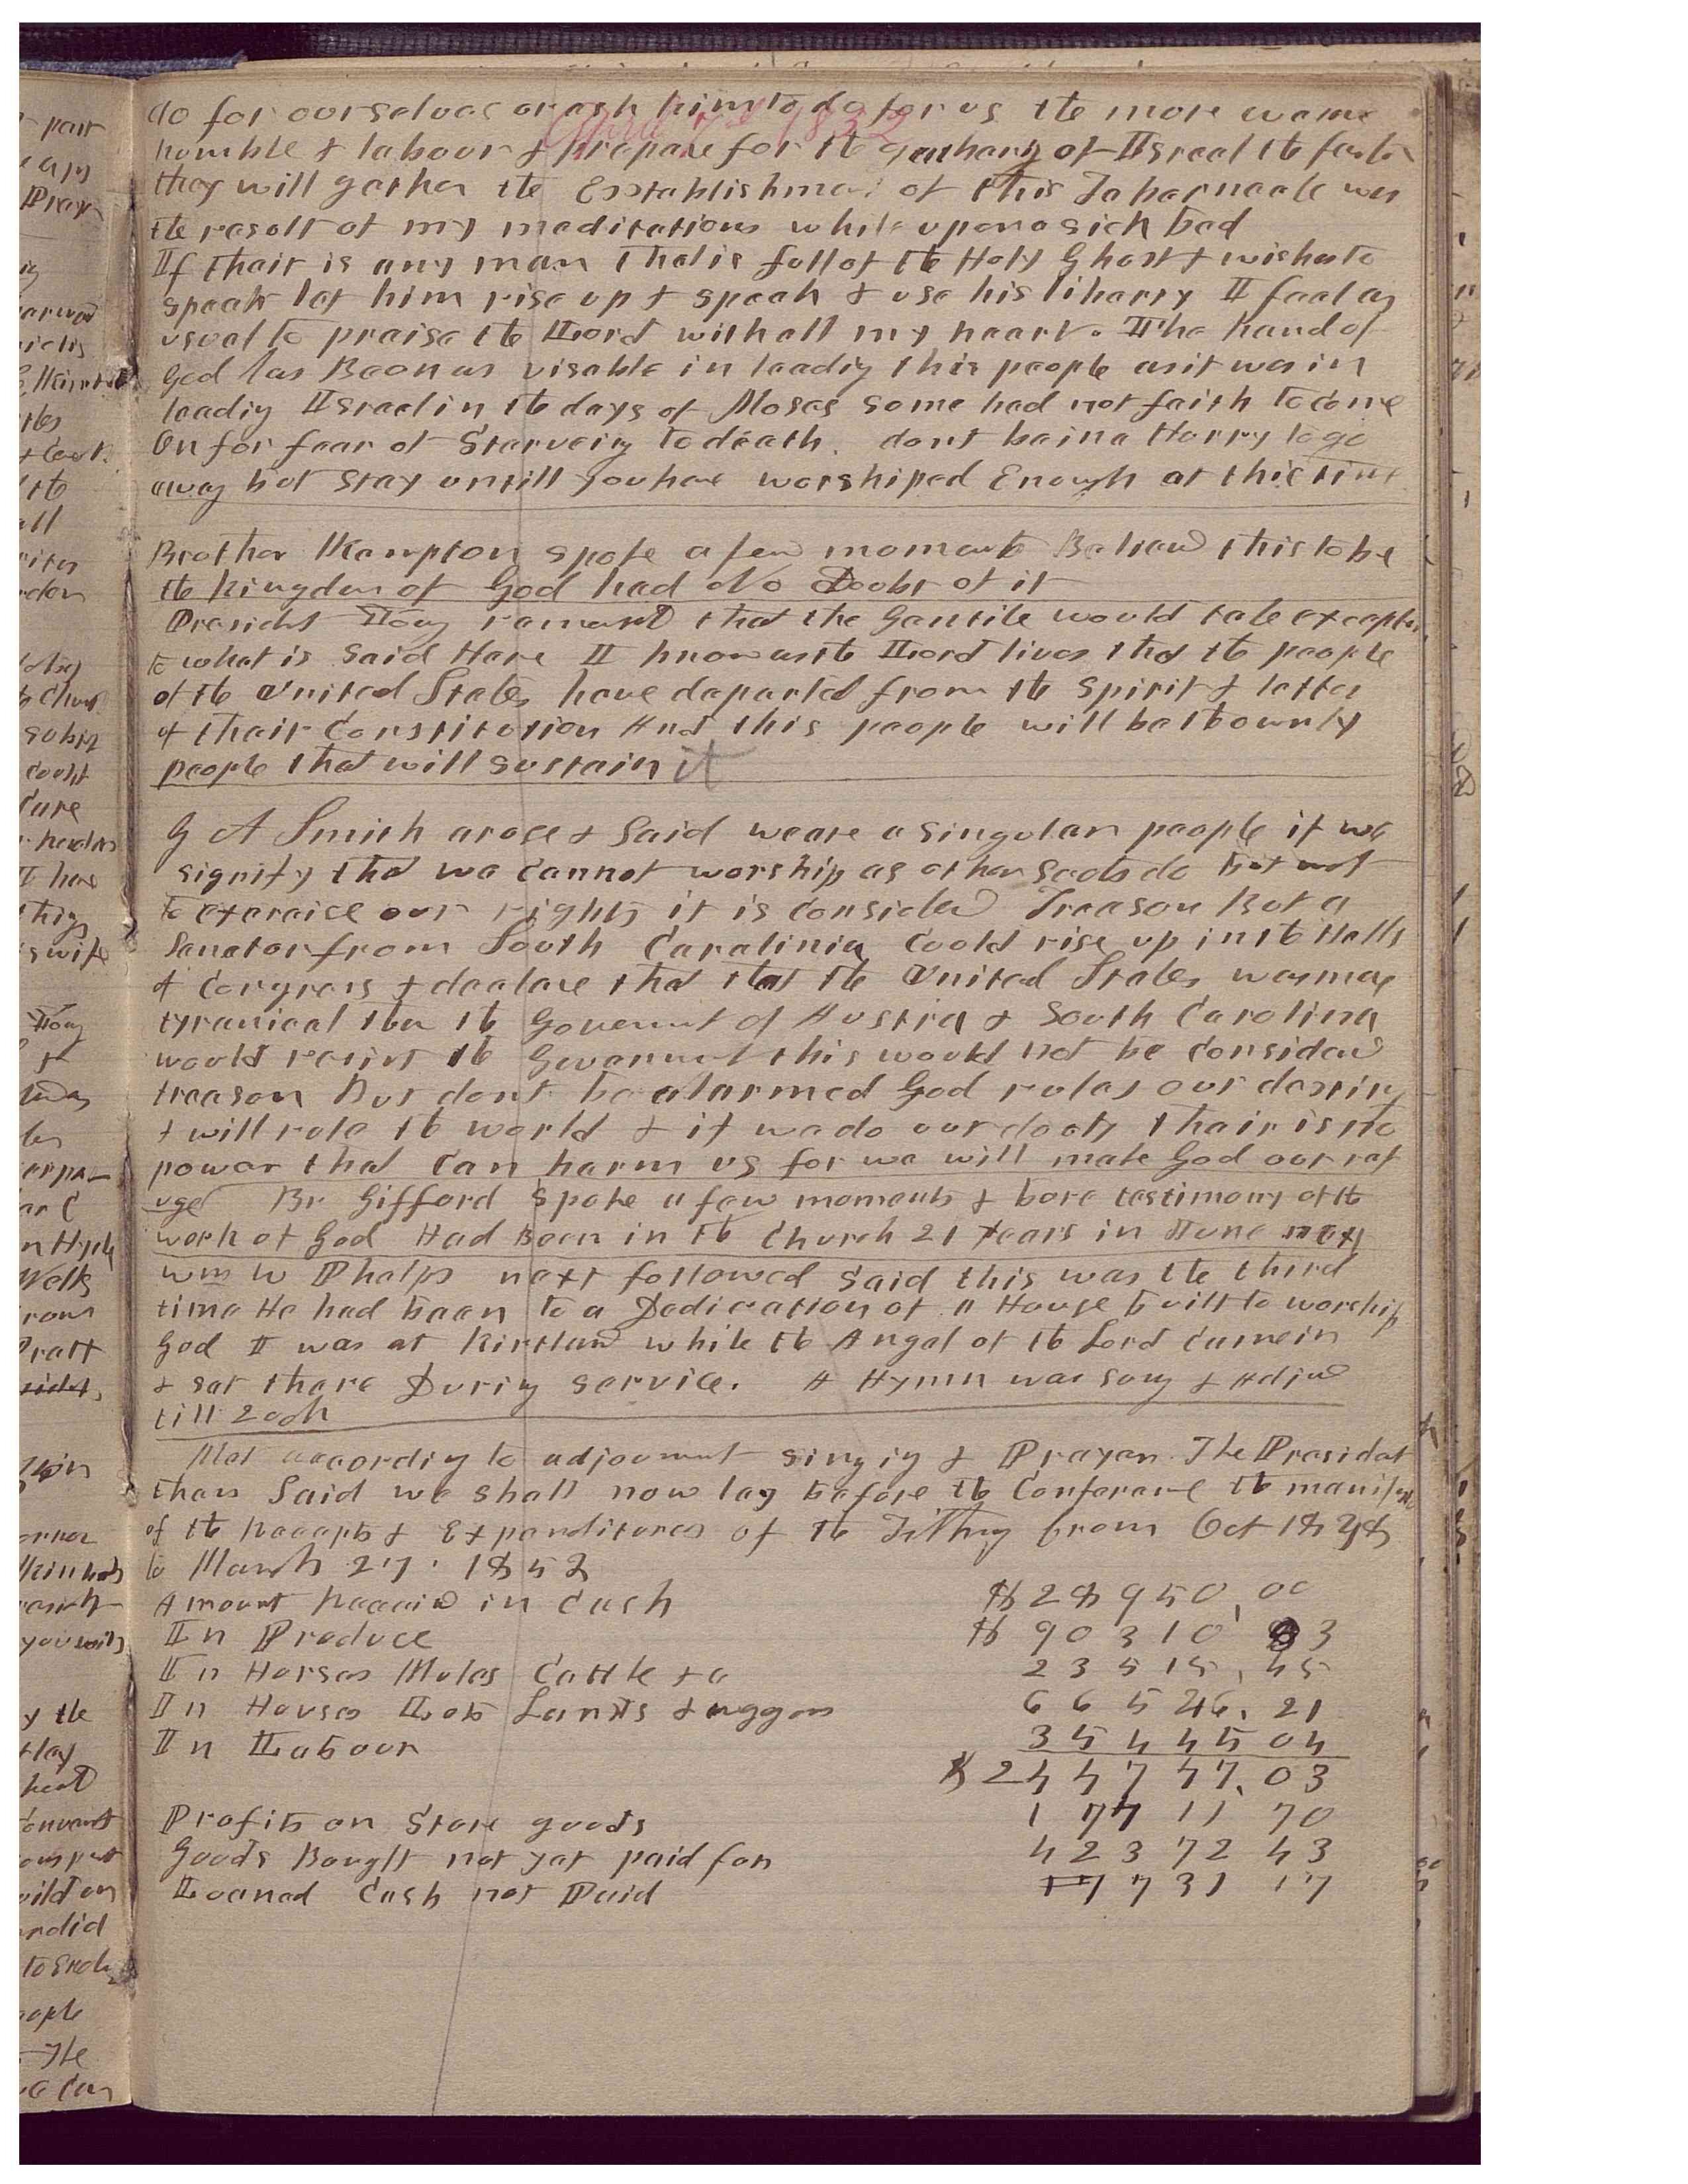 do for ourselves or ask him to do for us the more we are
April 1852
humble & labour & prepare for the gathering of Israel the faster
they will gather the Esstablishment of this Tabernacle was
the result of my meditations while upon a sick bed
If thair is any man that is full of the Holy Ghost & wishes to
speak let him rise up & speak & use his liberty I feel as
usual to praise the Lord with all my heart. The hand of
God has Been as visable in leadig this people as it was in
leadig Israel in the days of Moses some had not faith to come
On for fear of Starveing to death. dont be in a Hurry to go
away but Stay untill you have worshiped Enough at this time
Brother Kempton spoke a few moments Believd this to be
the kingdom of God had No Doubt of it
Presidet Young remarkd that the Gentile would take exceptin
to what is said Here I know as the Lord lives that the people
of the United States have departed from the spirit & letter
of thair Constitution And this people will be the ownly
people that will sustain it
G A Smith arose & Said we are a singular people if we
signify that we cannot worship as other sects do but not
to exercise our rights it is considerd Treason But a
Senator from South Caralinia Could rise up in the Halls
of Congress & declare that that the United States was more
tyranical then the Goverment of Austria & South Carolina
would resist the Goverment this would not be considerd
treason But dont be alarmed God rules our destiny
& will rule the world & if we do our dooty thair is no
power that Can harm us for we will make God our ref
uge Br Gifford spoke a few moments & bore testimony of the
work of God Had Been in the Church 21 years in June next
wm W Phelps next followed Said this was the third
time He had been to a Dedication of a House built to worship
God I was at Kirtland while the Angel of the Lord came in
& sat there During service. A Hymn was sung & Adjd
till 2 och
Met according to adjournmt singig & Prayer. The President
then Said we shall now lay before the Conference the manifest
of the Receipts & Expenditures of the Tithing from Oct 1848
to March 27. 1852
Amount Receivd in Cash $28950,00
In Produce $ 90310 83
In Horses Mules Cattle &c 23515,45
In Houses Lots Lands & waggons 66526.21
In Labour 35445 04
$244747.03
Profits on Store goods 17711 70
Goods Bought not yet paid for 42372 43
Loaned Cash not Paid 17731 17